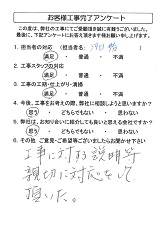 お客様工事完了アンケート
この度は、弊社の工事にてご愛顧頂き誠に有難うございました。
最後に、下記アンケートにお答え頂きます様お願い申し上げます。
1. 担当者の対応 (担当者名:
満足 ・ 普通 ・ 不満
2. 工事スタッフの対応
満足 ・ 普通 ・ 不満
3. 工事の工期・仕上がり・清掃
満足 ・ 普通 ・ 不満
4. 今後、工事をお考えの際、弊社に相談しようと思いますか?
思う ・ どちらでもない ・ 思わない
5. 弊社は、お知り合いに紹介しても良いと思える会社ですか?
思う ・ どちらでもない ・ 思わない
6. その他、ご意見・ご希望等ございましたらお聞かせ下さい
工事に対する説明等
親切に対応をして
頂いた。